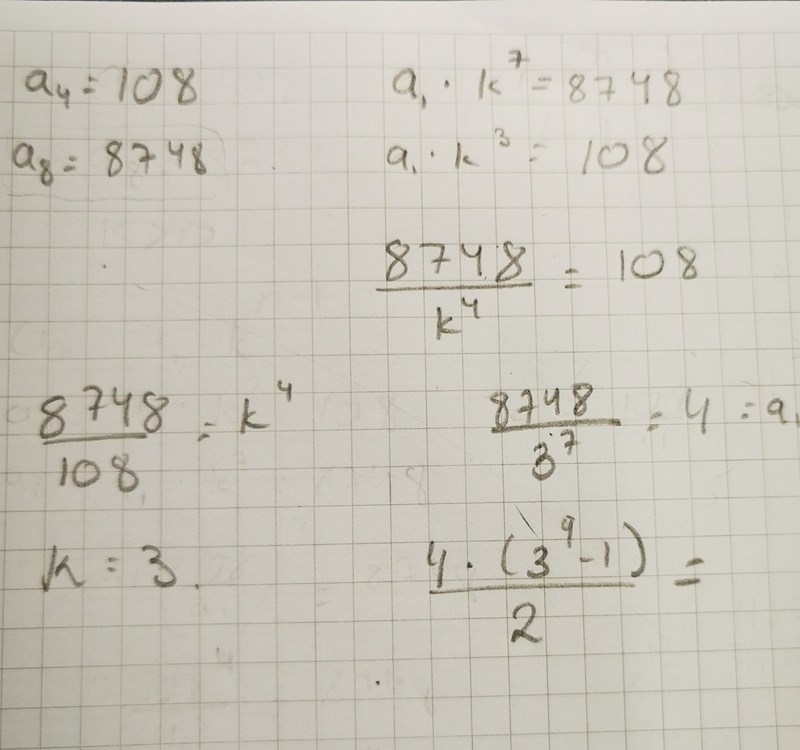 a₄ = 108
a₈ = 8748
a₁ · k⁷ = 8748
a₁ · k³ = 108
8748/k⁴ = 108
8748/108 = k⁴
k = 3.
8748/3⁷ = 4 = a₁
4 · (3⁹ - 1)/2 =